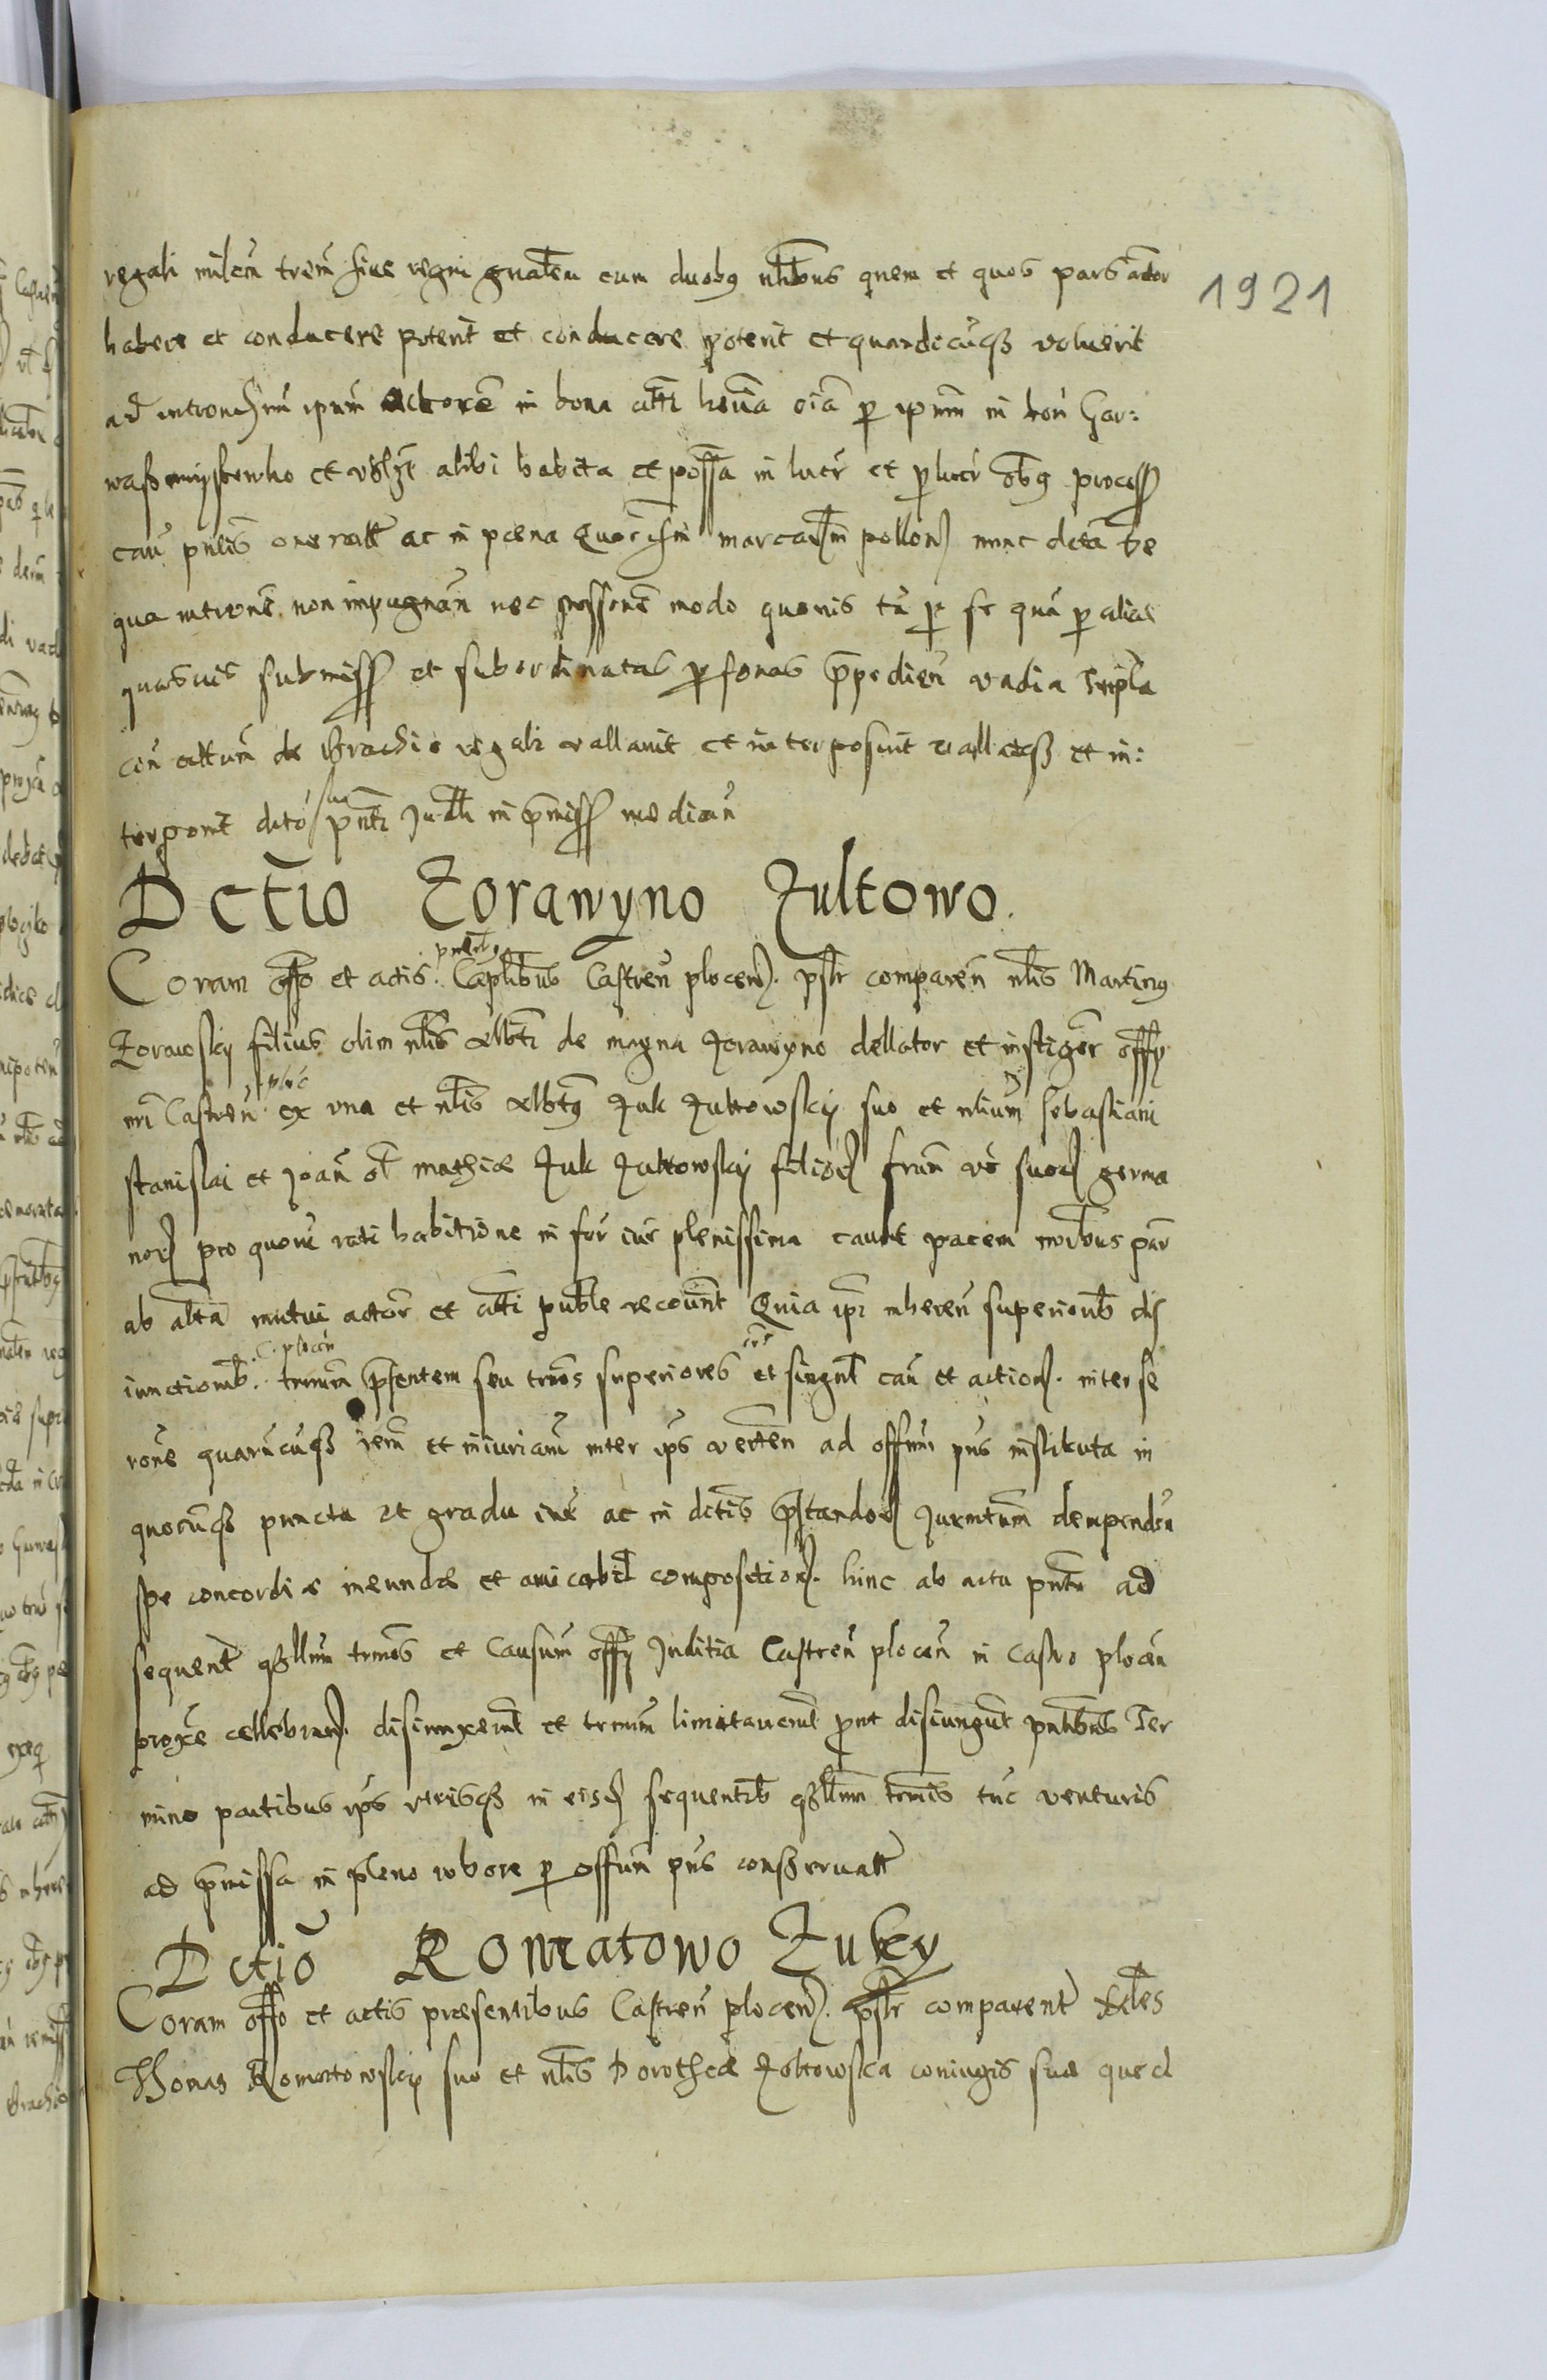 regali milem trem sive regni gnalem cum duobus nlibus quem et quos pars actor
1921
habere et conducere poterit et conducere poterit et quandocuq voluerit
ad intronem ipum Actore in bona att omia per ipum in bon Gar:
et alibi habita et possa in lucr et per lucr process
cau pntis ac in poena marcarum pollon nunc dcta de
qua introne non impugnan nec modo quovis ta per se qua per alias
quasvis submiss et subordinatas personas praepedien vadia Tripla
con attum de Brachio regali vallavit et interposuit vallatq et in:
terponit dcto sua pnti Judli in praemiss median
Dctio Zorawyno Zultowo.
Coram offo et actis pntibus Caplibus Castren plocen pslr comparen nlis Martinus
Zorawsky filius olim nlis Albti de magna Zorawyno dellator et instigor offy
nri Castren ploc ex una et nlis Albtus Zuk Zultowsky suo et nlium Sebastiani
stanislai et Joan ol mathiae Zuk Zultowsky filior fram vo suor germa
nor pro quorum rati habitione in for iur plenissima cavit pacem moribus par
ab altra mutui actor et atti puble recount Quia ipi inheren superiorib dis
iunctionib C. plocen trmum praesentem seu trnos superiores oes et singul cau et action inter se
rone quarucuq rem et iniuriam inter ips verten ad offum pns instituta in
quocuq puncto et gradu iur ac in dctis praestandor Jurmtum dempendon
spe concordiae ineundae et amicabil composition hinc ab actu pnti ad
sequent qllum trmos et Causum offy Juditia Castren plocen in Castro plocen
proxe cellebran disiunxerut et trmum limitaverut prout disiungut pntibus Ter
mino partibus ips utrisq in eisd sequentib qllum trmis tuc venturis
ad praemissa in pleno robore per offum pns conservatt
Dctio Romatowo Zuky
Coram offo et actis praesentibus Castren plocen pslr comparent Nles
Thomas Romatowsky suo et nlis Dorotheae Zoltowska coniugis suae que d